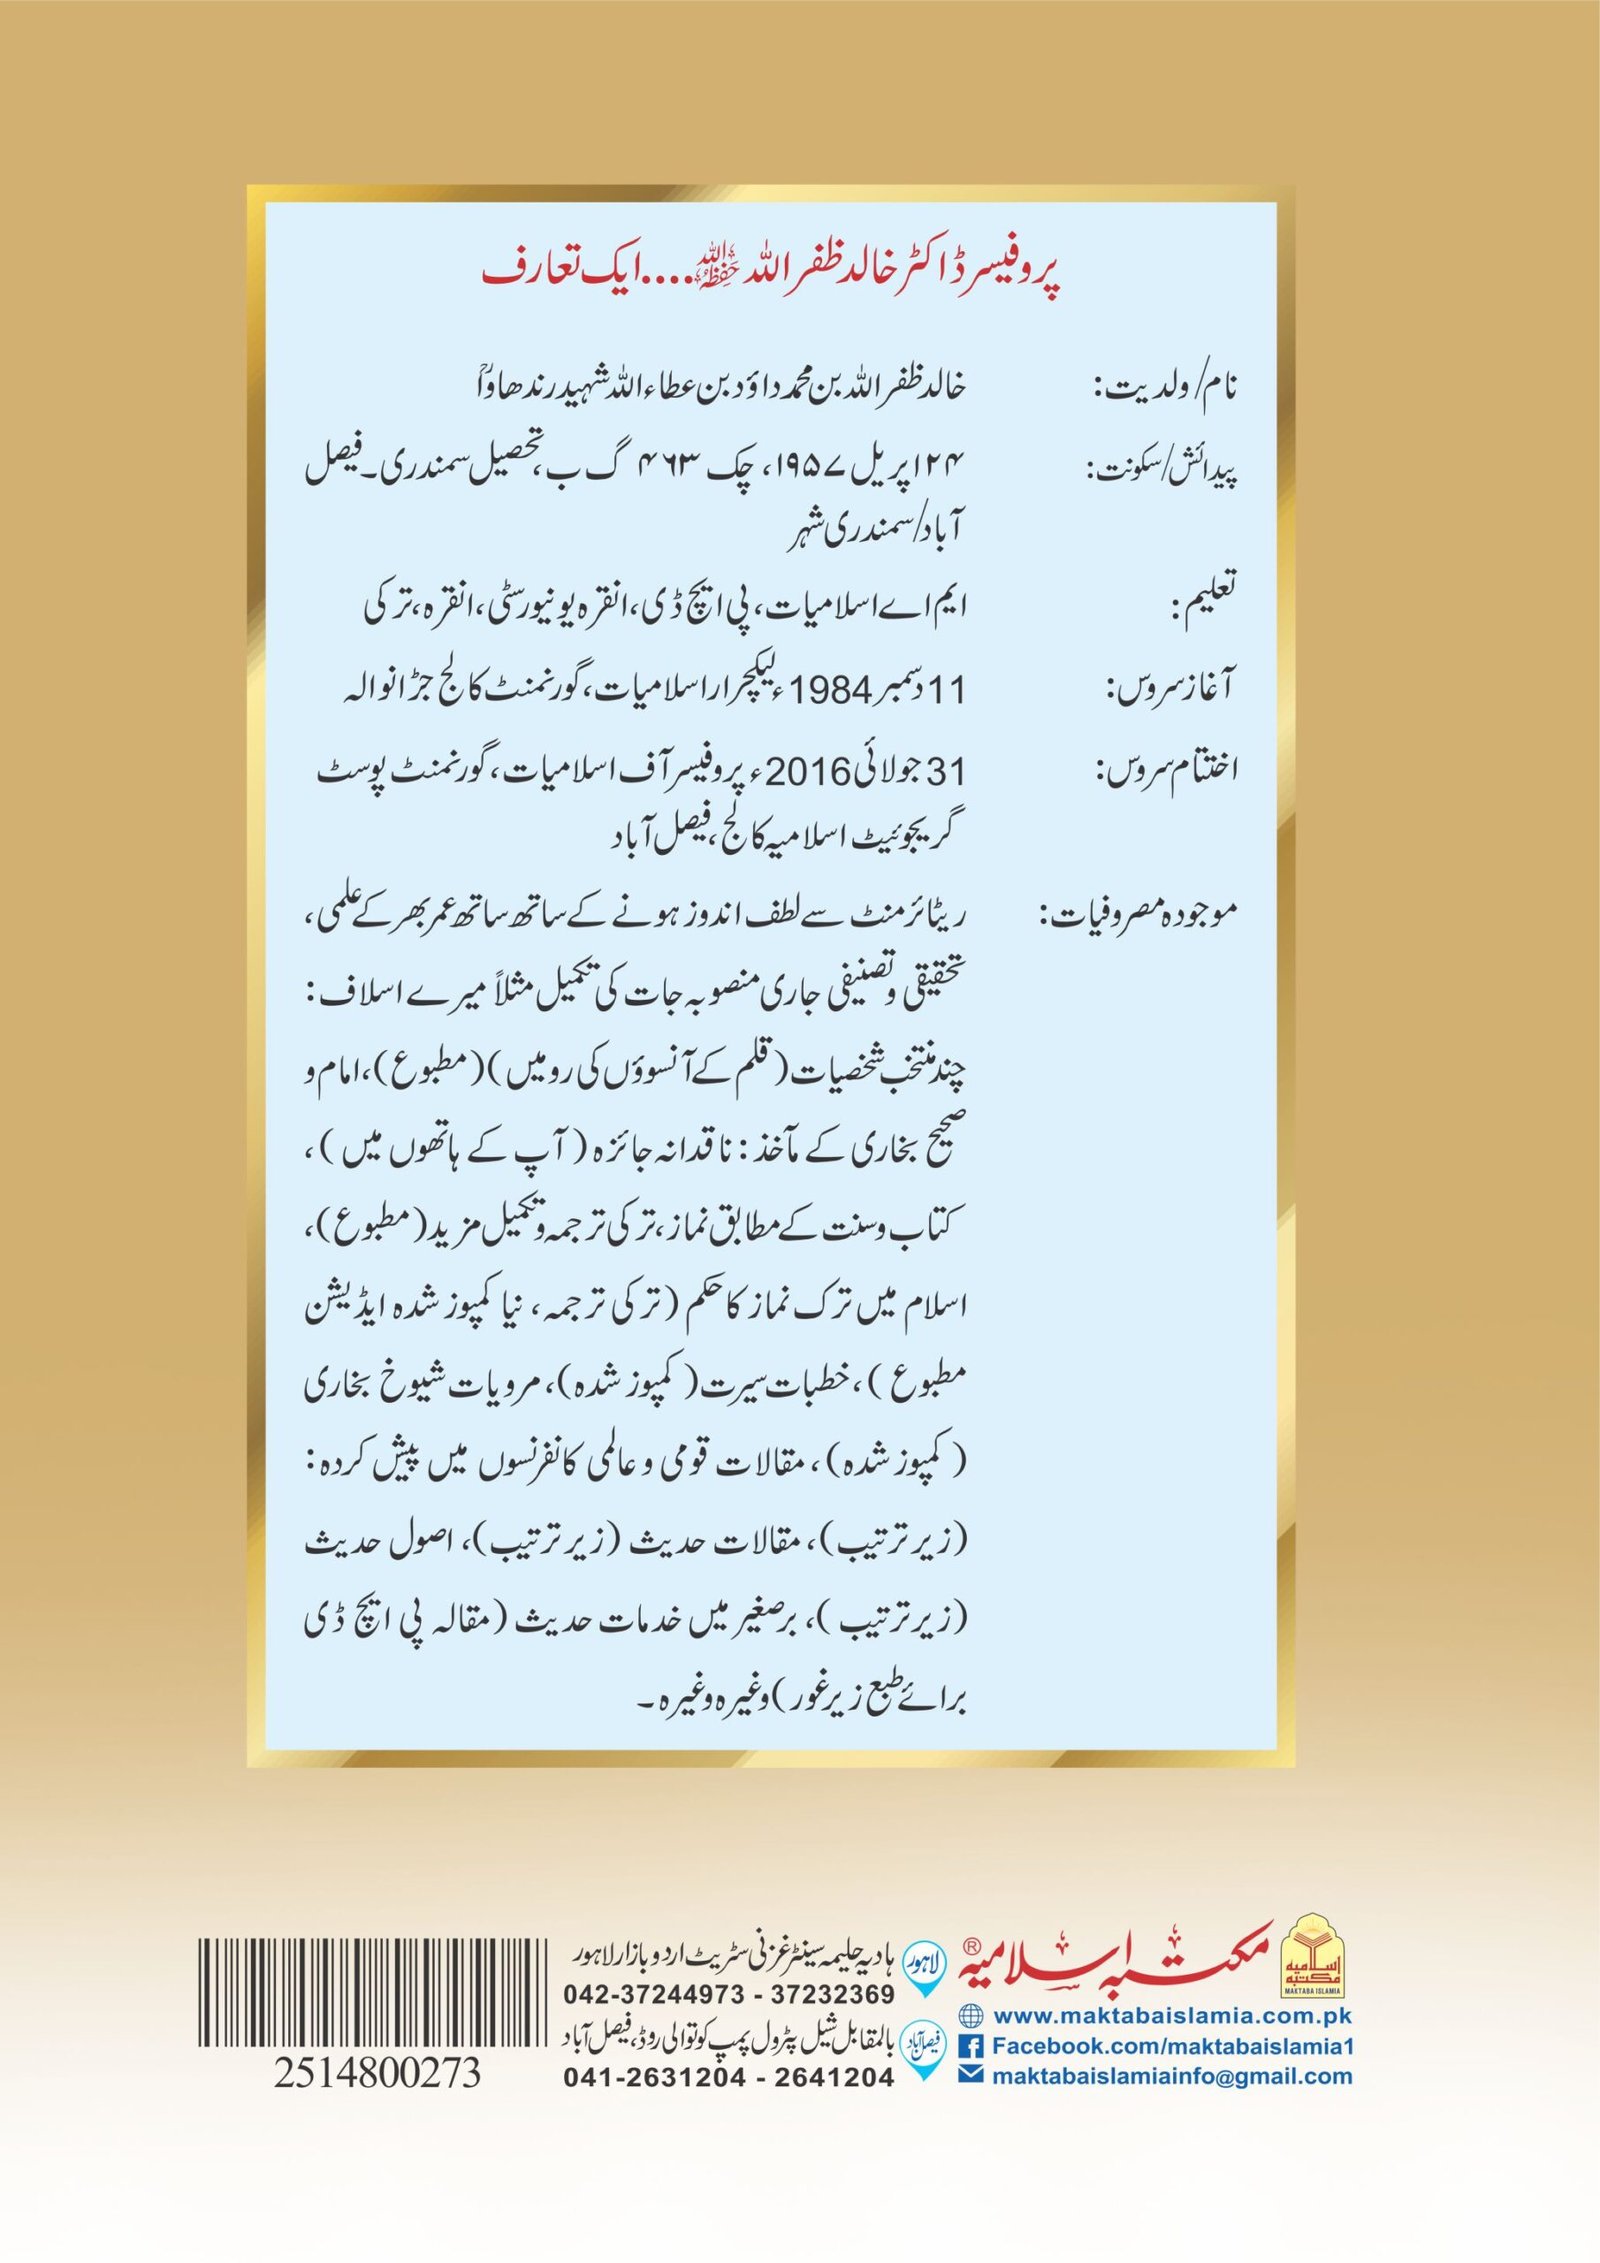 پروفیسر ڈاکٹر خالد ظفر اللہ حفظہ اللہ....ایک تعارف
نام/ولدیت: خالد ظفر اللہ بن محمد داؤد بن عطاء اللہ شہید رندھاواؒ
پیدائش/سکونت: ۲۴ اپریل ۱۹۵۷، چک ۴۶۳ گ ب، تحصیل سمندری۔ فیصل
آباد/سمندری شہر
تعلیم: ایم اے اسلامیات، پی ایچ ڈی، انقرہ یونیورسٹی، انقرہ، ترکی
آغاز سروس: 11 دسمبر 1984ء لیکچرار اسلامیات، گورنمنٹ کالج جڑانوالہ
اختتام سروس: 31 جولائی 2016ء پروفیسر آف اسلامیات، گورنمنٹ پوسٹ
گریجوئیٹ اسلامیہ کالج، فیصل آباد
موجودہ مصروفیات: ریٹائرمنٹ سے لطف اندوز ہونے کے ساتھ ساتھ عمر بھر کے علمی،
تحقیقی و تصنیفی جاری منصوبہ جات کی تکمیل مثلاً میرے اسلاف:
چند منتخب شخصیات (قلم کے آنسوؤں کی رو میں) (مطبوع)، امام و
صحیح بخاری کے مآخذ: ناقدانہ جائزہ (آپ کے ہاتھوں میں)،
کتاب و سنت کے مطابق نماز، ترکی ترجمہ و تکمیل مزید (مطبوع)،
اسلام میں ترک نماز کا حکم (ترکی ترجمہ، نیا کمپوز شدہ ایڈیشن
مطبوع)، خطبات سیرت (کمپوز شدہ)، مرویات شیوخ بخاری
(کمپوز شدہ)، مقالات قومی و عالمی کانفرنسوں میں پیش کردہ:
(زیر ترتیب)، مقالات حدیث (زیر ترتیب)، اصول حدیث
(زیر ترتیب)، برصغیر میں خدمات حدیث (مقالہ پی ایچ ڈی
برائے طبع زیر غور) وغیرہ وغیرہ۔
مکتبہ اسلامیہ ®
اسلامیہ مکتبہ
MAKTABA ISLAMIA
www.maktabaislamia.com.pk
Facebook.com/maktabaislamia1
maktabaislamiainfo@gmail.com
لاہور ہادیہ حلیمہ سینٹر غزنی سٹریٹ اردو بازار لاہور
042-37244973 - 37232369
فیصل آباد بالمقابل شیل پٹرول پمپ کوتوالی روڈ، فیصل آباد
041-2631204 - 2641204
2514800273